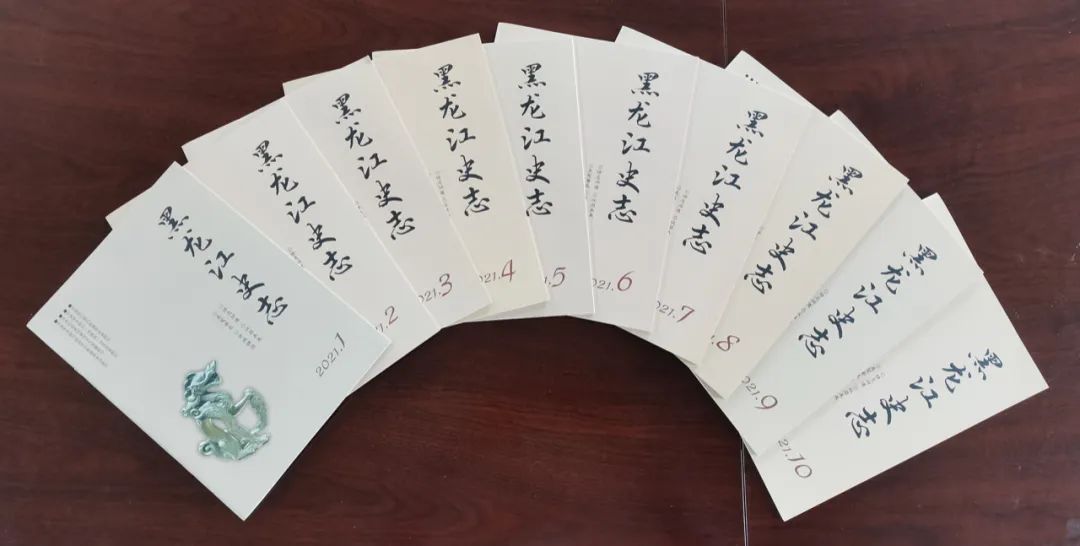 黑龙江史志
2021.1
黑龙江史志
2
黑龙江史志
021.3
黑龙江史志
021.4
黑龙江史志
21.5
黑龙江史志
021.6
黑龙江史志
021.7
黑龙江史志
.8
黑龙江史志
021.9
黑龙江史志
21.10